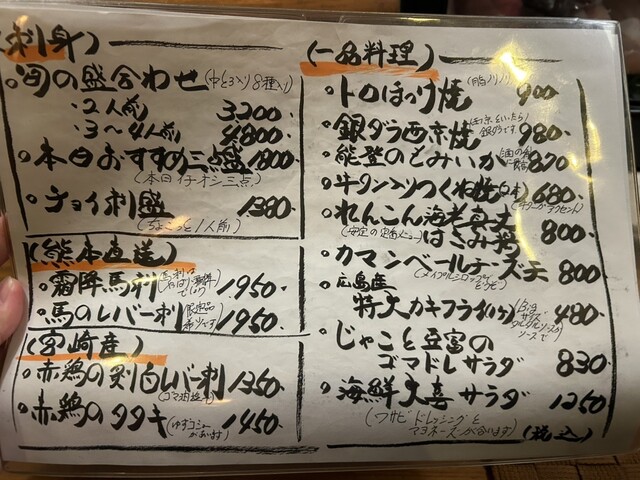 (刺身)
旬の盛合わせ(中とろ入り8種入り)
・2人前 3200
・3〜4人前 4800
本日おすすめ三点盛 1800
(本日イチオシ三点)
チョイ刺盛 1380
(ちょこっと1人前)
(熊本直送)
霜降馬刺 1950
馬のレバー刺 1950
(宮崎産)
赤鶏の白レバー刺 1350
(ゴマ油塩)
赤鶏のタタキ 1450
(一品料理)
トロほっけ焼 900
銀ダラ西京焼 980
能登のとみいか 820
牛タン入りつくね焼(2本) 680
れんこん海老
はさみ揚 800
(安定の定番メニュー)
カマンベールチーズ天 800
(メイプルシロップで)
広島産
特大カキフライ(1ヶ) 480
じゃこと豆富の
ゴマドレサラダ 830
海鮮大喜サラダ 1250
(ワサビドレッシングと
マヨネーズが合います)
(税込)